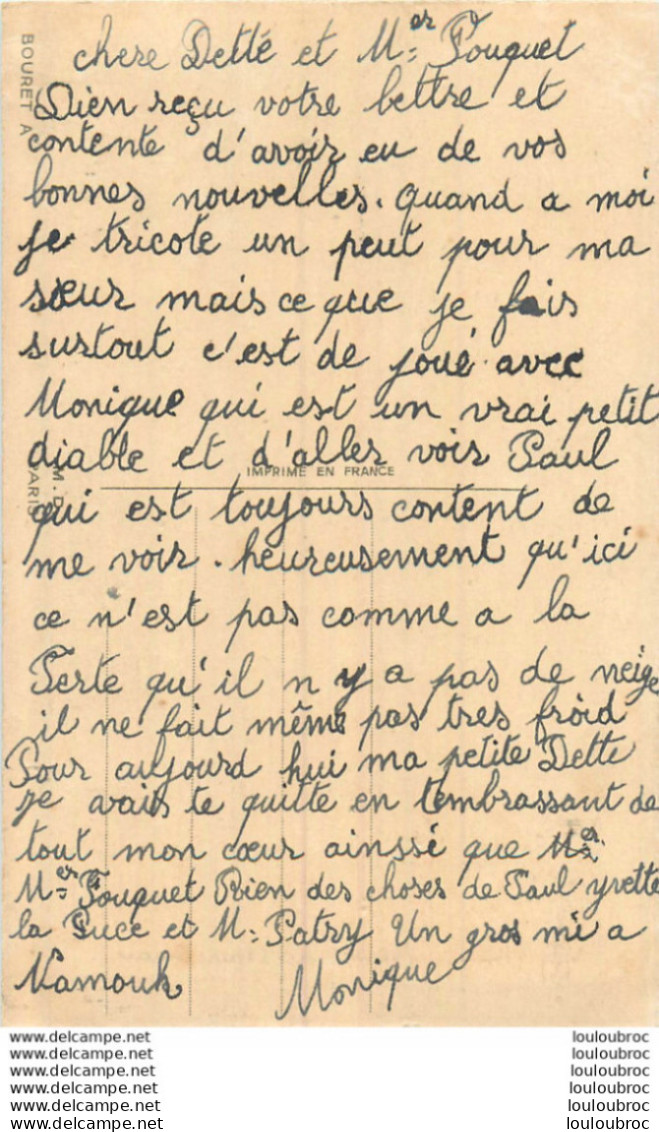 chere Detté et M=er Fouquet
Bien reçu votre lettre et
contente d'avoir eu de vos
bonnes nouvelles. quand a moi
je tricote un peut pour ma
sœur mais ce que je fais
surtout c'est de joué avec
Monique qui est un vrai petit
diable et d'aller voir Paul
IMPRIME EN FRANCE
qui est toujours content de
me voir. heureusement qu'ici
ce n'est pas comme a la
Ferte qu'il n y a pas de neige
il ne fait même pas tres froid
Pour aujourd hui ma petite Dette
je vais te quitte en t'embrassant de
tout mon cœur ainssi que M=er
M=er Fouquet Bien des choses de Paul yvette
la Puce et M= Patry Un gros mi a
Namouk Monique
BOURET A
M. D.
PARIS
www.delcampe.net louloubroc
www.delcampe.net louloubroc
www.delcampe.net louloubroc
www.delcampe.net louloubroc
www.delcampe.net louloubroc
www.delcampe.net louloubroc